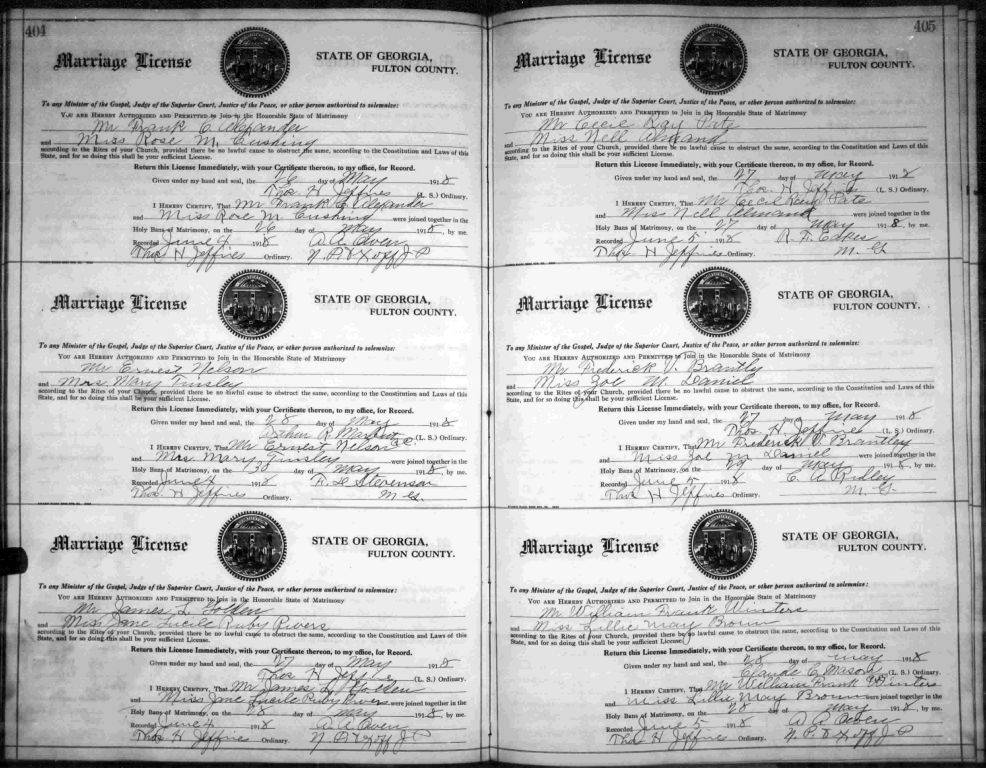 404
Marriage License
STATE OF GEORGIA,
FULTON COUNTY.
To any Minister of the Gospel, Judge of the Superior Court, Justice of the Peace, or other person authorized to solemnize:
YOU ARE HEREBY AUTHORIZED AND PERMITTED to Join in the Honorable State of Matrimony
Mr Frank C Alexander
and Miss Rose M. Cushing
according to the Rites of your Church, provided there be no lawful cause to obstruct the same, according to the Constitution and Laws of this
State, and for so doing this shall be your sufficient License.
Return this License Immediately, with your Certificate thereon, to my office, for Record.
Given under my hand and seal, the 26 day of May 1918
Thos. H Jeffries (L. S.) Ordinary.
I HEREBY CERTIFY, That Mr Frank C Alexander
and Miss Rose M Cushing were joined together in the
Holy Bans of Matrimony, on the 26 day of May 1918, by me.
Recorded June 4 1918 A. A. Owen
Thos H Jeffries Ordinary. N. P. & Ex off J P
Marriage License
STATE OF GEORGIA,
FULTON COUNTY.
To any Minister of the Gospel, Judge of the Superior Court, Justice of the Peace, or other person authorized to solemnize:
YOU ARE HEREBY AUTHORIZED AND PERMITTED to Join in the Honorable State of Matrimony
Mr Ernest Nelson
and Mrs. Mary Tinsley
according to the Rites of your Church, provided there be no lawful cause to obstruct the same, according to the Constitution and Laws of this
State, and for so doing this shall be your sufficient License.
Return this License Immediately, with your Certificate thereon, to my office, for Record.
Given under my hand and seal, the 28 day of May 1918
R. (L. S.) Ordinary.
I HEREBY CERTIFY, That Mr Ernest Nelson
and Mrs. Mary Tinsley were joined together in the
Holy Bans of Matrimony, on the 30 day of May 1918, by me.
Recorded June 4 1918 Stevenson
Thos H Jeffries Ordinary. M. G.
Marriage License
STATE OF GEORGIA,
FULTON COUNTY.
To any Minister of the Gospel, Judge of the Superior Court, Justice of the Peace, or other person authorized to solemnize:
YOU ARE HEREBY AUTHORIZED AND PERMITTED to Join in the Honorable State of Matrimony
Mr James L Golden
and Miss Jane Lucile Ruby Rivers
according to the Rites of your Church, provided there be no lawful cause to obstruct the same, according to the Constitution and Laws of this
State, and for so doing this shall be your sufficient License.
Return this License Immediately, with your Certificate thereon, to my office, for Record.
Given under my hand and seal, the 27 day of May 1918
Thos H Jeffries (L. S.) Ordinary.
I HEREBY CERTIFY, That Mr James L Golden
and Miss Jane Lucile Ruby Rivers were joined together in the
Holy Bans of Matrimony, on the 28 day of May 1918, by me.
Recorded June 4 1918 A. A. Owen
Thos H Jeffries Ordinary. N. P. & Ex off J P
405
Marriage License
STATE OF GEORGIA,
FULTON COUNTY.
To any Minister of the Gospel, Judge of the Superior Court, Justice of the Peace, or other person authorized to solemnize:
YOU ARE HEREBY AUTHORIZED AND PERMITTED to Join in the Honorable State of Matrimony
Mr Cecil Ray Pate
and Miss Nell Almand
according to the Rites of your Church, provided there be no lawful cause to obstruct the same, according to the Constitution and Laws of this
State, and for so doing this shall be your sufficient License.
Return this License Immediately, with your Certificate thereon, to my office, for Record.
Given under my hand and seal, the 27 day of May 1918
Thos H Jeffries (L. S.) Ordinary.
I HEREBY CERTIFY, That Mr Cecil Ray Pate
and Miss Nell Almand were joined together in the
Holy Bans of Matrimony, on the 27 day of May 1918, by me.
Recorded June 5 1918 R. F. Eakes
Thos H Jeffries Ordinary. M. G.
Marriage License
STATE OF GEORGIA,
FULTON COUNTY.
To any Minister of the Gospel, Judge of the Superior Court, Justice of the Peace, or other person authorized to solemnize:
YOU ARE HEREBY AUTHORIZED AND PERMITTED to Join in the Honorable State of Matrimony
Mr Frederick V. Brantly
and Miss Zoe M. Daniel
according to the Rites of your Church, provided there be no lawful cause to obstruct the same, according to the Constitution and Laws of this
State, and for so doing this shall be your sufficient License.
Return this License Immediately, with your Certificate thereon, to my office, for Record.
Given under my hand and seal, the 27 day of May 1918
Thos. H Jeffries (L. S.) Ordinary.
I HEREBY CERTIFY, That Mr Frederick V Brantley
and Miss Zoe M Daniel were joined together in the
Holy Bans of Matrimony, on the 29 day of May 1918, by me.
Recorded June 5 1918 C. A. Ridley
Thos H Jeffries Ordinary. M. G.
Marriage License
STATE OF GEORGIA,
FULTON COUNTY.
To any Minister of the Gospel, Judge of the Superior Court, Justice of the Peace, or other person authorized to solemnize:
YOU ARE HEREBY AUTHORIZED AND PERMITTED to Join in the Honorable State of Matrimony
Mr William Frank Winters
and Miss Lillie May Brown
according to the Rites of your Church, provided there be no lawful cause to obstruct the same, according to the Constitution and Laws of this
State, and for so doing this shall be your sufficient License.
Return this License Immediately, with your Certificate thereon, to my office, for Record.
Given under my hand and seal, the 28 day of May 1918
Claude C Mason (L. S.) Ordinary.
I HEREBY CERTIFY, That Mr William Frank Winters
and Miss Lillie May Brown were joined together in the
Holy Bans of Matrimony, on the 28 day of May 1918, by me.
Recorded June 5 1918 A. A. Owen
Thos H Jeffries Ordinary. N. P. & Ex off J P